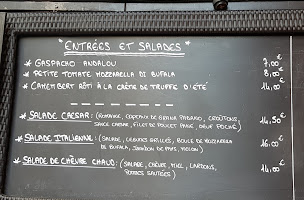 "ENTRÉES ET SALADES"
* GASPACHO ANDALOU 7,00€
* PETITE TOMATE MOZZARELLA DI BUFALA 8,00€
* CAMEMBERT RÔTI À LA CRÈME DE TRUFFE D'ÉTÉ 14,00€
* SALADE CAESAR: (ROMAINE, COPEAUX DE GRANA PADANO, CROÛTONS 14,50€
SAUCE CAESAR, FILET DE POULET PANÉ, OEUF POCHÉ)
* SALADE ITALIENNE: (SALADE, LÉGUMES GRILLÉS, BOULE DE MOZZARELLA 16,00€
DI BUFALA, JAMBON DE PAYS, MELON)
* SALADE DE CHÈVRE CHAUD: (SALADE, CHÈVRE, MIEL, LARDONS, 14,00€
POMMES SAUTÉES)